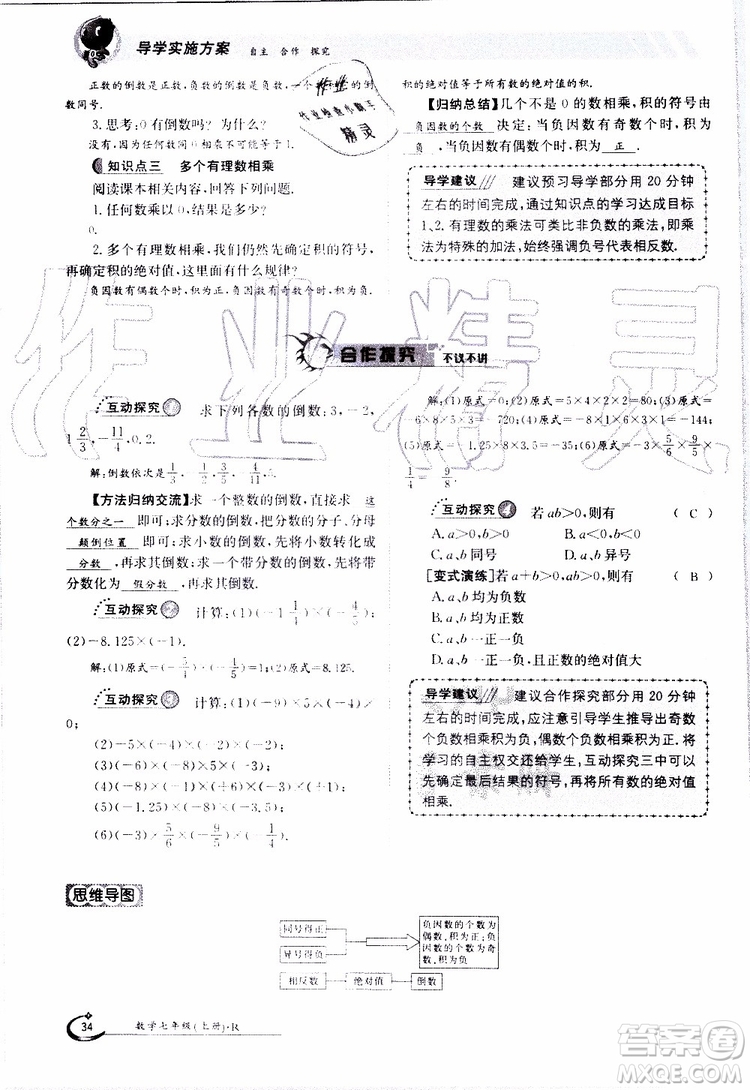 导学实施方案 自主 合作 探究
正数的倒数是正数,负数的倒数是负数,
数同号.
3.思考:0有倒数吗?为什么?
没有,因为任何数同0相乘不可能等于1.
知识点三 多个有理数相乘
阅读课本相关内容,回答下列问题.
1.任何数乘以0,结果是多少?
0.
2.多个有理数相乘,我们仍然先确定积的符号,
再确定积的绝对值,这里面有什么规律?
负因数有偶数个时,积为正,负因数有奇数个时,积为负.
积的绝对值等于所有数的绝对值的积.
【归纳总结】几个不是0的数相乘,积的符号由
负因数的个数 决定:当负因数有奇数个时,积为
负,当负因数有偶数个时,积为 正 .
导学建议 建议预习导学部分用20分钟
左右的时间完成,通过知识点的学习达成目标
1、2.有理数的乘法可类比非负数的乘法,将乘
法为特殊的加法,始终强调负号代表相反数.
合作探究 不议不讲
互动探究 求下列各数的倒数:3,-2,
1 2/3,-11/4,0.2.
解:倒数依次是1/3,
【方法归纳交流】求一个整数的倒数,直接求 这
个数分之一 即可;求分数的倒数,把分数的分子、分母
颠倒位置 即可;求小数的倒数,先将小数转化成
分数 ,再求其倒数;求一个带分数的倒数,先将带
分数化为 假分数 ,再求其倒数.
互动探究 计算:(1)(-1 1/4)×(-4/5);
(2)-8.125×(-1).
解:(1)原式=(-5/4)×(-4/5)=1.(2)原式=8.125.
互动探究 计算:(1)(-9)×5×(-4)×
0;
(2)-5×(-4)×(-2)×(-2);
(3)(-6)×(-8)×(-5)×(-3);
(4)(-8)×(-1)×(+6)×(-3)×(+1);
(5)(-1.25)×(-8)×(-3.5);
(6)(-3)×5/6×(-9/5)×(-1/4).
解:(1)原式=0;(2)原式=5×4×2×2=80;(3)原式=
6×8×5×3=720;(4)原式=-8×1×6×3×1=-144;
(5)原式=-1.25×8×3.5=-35;(6)原式=-3×5/6×9/5×
1/4=-9/8.
互动探究 若ab>0,则有 ( C )
A.a>0,b>0 B.a<0,b<0
C.a、b同号 D.a、b异号
[变式演练]若a+b>0,ab>0,则有 ( B )
A.a、b均为负数
B.a、b均为正数
C.a、b一正一负
D.a、b一正一负,且正数的绝对值大
导学建议 建议合作探究部分用20分钟
左右的时间完成,应注意引导学生推导出奇数
个负数相乘积为负,偶数个负数相乘积为正.将
学习的自主权交还给学生,互动探究三中可以
先确定最后结果的符号,再将所有数的绝对值
相乘.
思维导图
同号得正
异号得负
负因数的个数为
偶数,积为正;负
因数的个数为奇
数,积为负.
相反数 绝对值 倒数
34 数学七年级(上册)·R